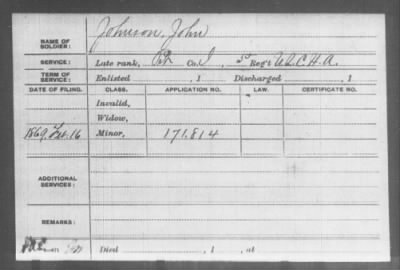 NAME OF SOLDIER: Johnson, John
SERVICE: Late rank, Pvt Co. I, 5" Reg't U.S.C.H.A.
TERM OF SERVICE: Enlisted , 1 Discharged , 1
DATE OF FILING. CLASS. APPLICATION NO. LAW. CERTIFICATE NO.
Invalid,
Widow,
1869, Feb. 16 Minor, 171.814
ADDITIONAL SERVICES:
REMARKS:
Died , 1 , at